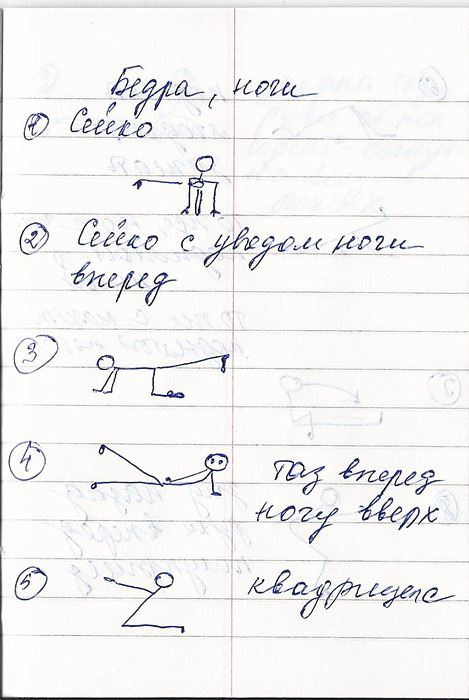 Бедра, ноги
1 Сейко
2 Сейко с уводом ноги
вперед
3
4 таз вперед
ногу вверх
5 квадрицепс